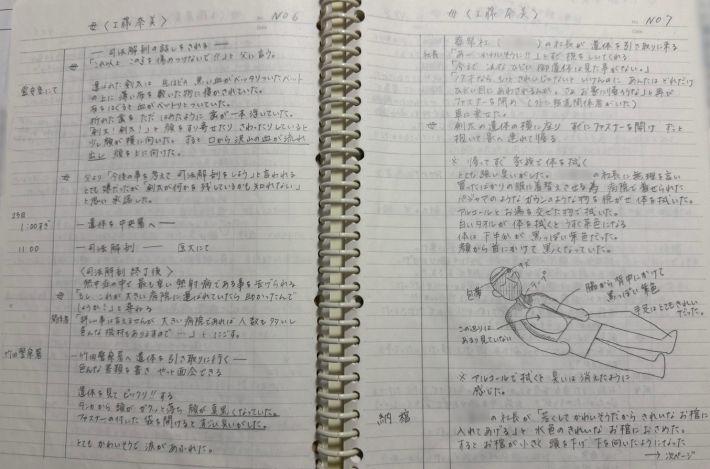 母〈工藤奈美〉 NO 6
― 司法解剖の話しをされる ―
母 「これ以上 この子を傷つけないで!!」と父に言う。
霊安室にて
運ばれた剣太は 足ほどの 黒い血がベッタリついたベット
の上に 薄い布を敷いた物に寝かされていた。
布をはぐると血がベットリとついていた。
折れた歯を ただ はめたように 歯が一本浮いていた。
「剣太!剣太!」と顔をすり寄せたり さわったりしていると
少し顔が横に向いた。すると 口から沢山の血が流れ
出し 顔を上に向けた。
母 父より「今後の事を考えて 司法解剖をしよう」と言われる
とても嫌だったが「剣太が何かを残しているかも知れない」
と思い 承諾した。
23日
1:00すぎ ― 遺体を中央署へ ―
11:00 ― 司法解剖 ― 医大にて
〈司法解剖 終了後〉
熱中症の中で 最も重い熱射病である事を告げられる
母 「もし、これが大きい病院に運ばれていたら助かったんで
しょうか?」と尋ねる
関係者 「詳しい事は言えませんが 大きい病院であれば 人数も多いし
色んな機材もありますので…」とにごす。
竹田警察署 ― 竹田警察署へ遺体を引き取りに行く ―
色んな書類を書き やっと面会できる
遺体を見て ビックリ!!する
タンカから頭が ガクッと落ち 顔が真黒くなっていた。
ファスナーの付いた袋を開けると すごい臭いがした。
とても かわいそうで 涙があふれた。
母〈工藤奈美〉 NO 7
葬祭社( )の社長が 遺体を引き取りに来る
社長 「あー かわいそうに!!」と すぐ 頭をもたげ
「今まで こんなひどい御遺体は見た事がない。」
ファスナーを閉め (外に報道関係者がいた)
車に乗せた。
母 剣太の遺体の横に座り すぐにファスナーを開け ずっと
抱いて家へ連れて帰る
※ 帰ってすぐ 家族で体を拭く
とても臭い臭いがした。 の社長に無理を言い
買ったばかりの服に着替えさせる為 病院で着せられた
パジャマのような ガウンのような物を脱がせ 体を拭いた。
アルコールとお湯を交ぜた物で拭いた。
白いタオルが 体を拭くと うす茶色になる
体は 下半分が 黒っぽい紫色だった。
顔から首にかけて 黒くなっていた。
包帯
脇から 背中にかけて
黒っぽい紫色
手足はとてもきれい
だった。
この辺りは
あまり見ていない
※ アルコールで拭くと 臭いは消えたように
感じた。
納棺 の社長が、「若くしてかわいそうだから きれいなお棺に
入れてあげる」と 水色のきれいなお棺におさめた。
するとお棺が小さく 頭を下げ 下を向いたようになった
→ 次ページ